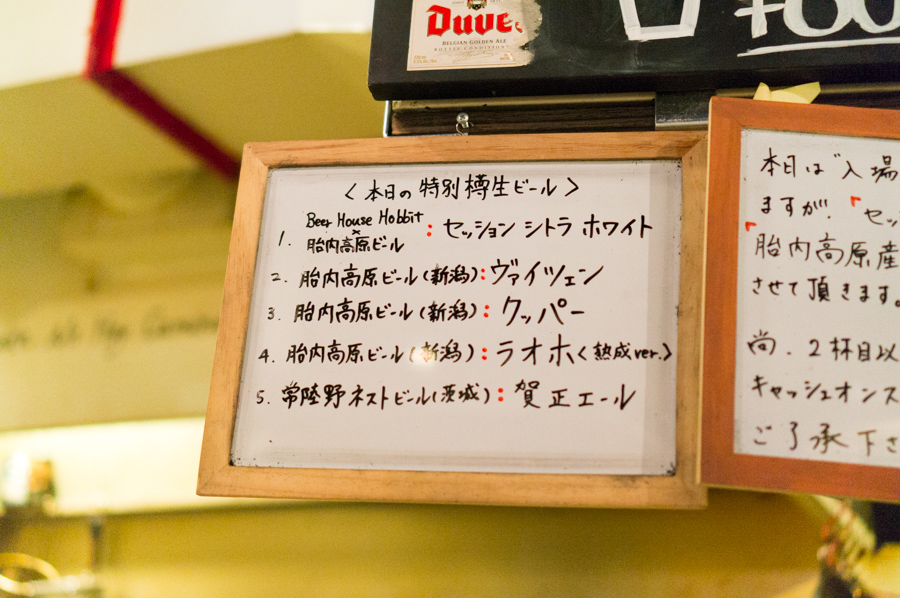 Duvel
BELGIAN GOLDEN ALE
BOTTLE CONDITIONED
<本日の特別樽生ビール>
1. Beer House Hobbit × 胎内高原ビール : セッション シトラ ホワイト
2. 胎内高原ビール(新潟):ヴァイツェン
3. 胎内高原ビール(新潟):クッパー
4. 胎内高原ビール(新潟):ラオホ<熟成ver.>
5. 常陸野ネストビール(茨城):賀正エール
本日は"入場
ますが、「セッ
「胎内高原産
させて頂きます。
尚、2杯目以
キャッシュオンス
ご了承下さ